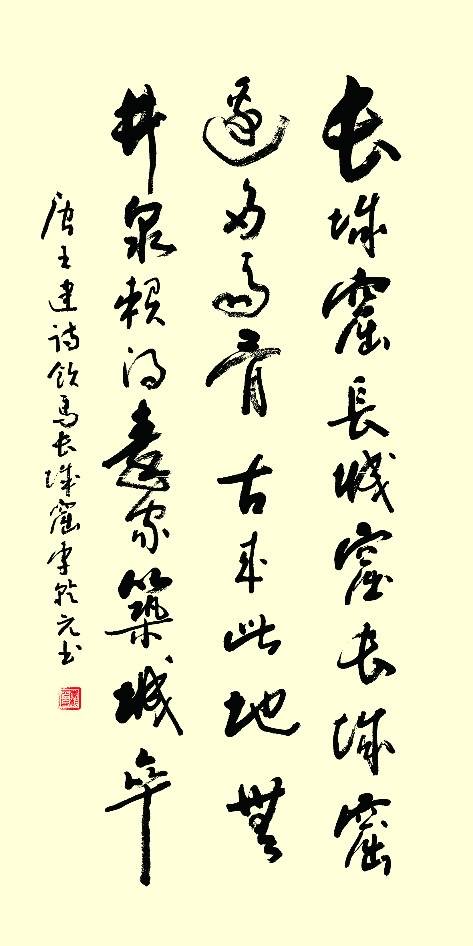 长城窟長城窟长城窟
邊多马骨古来此地無
井泉赖得秦家築城卒
唐王建诗饮马长城窟李乾元书